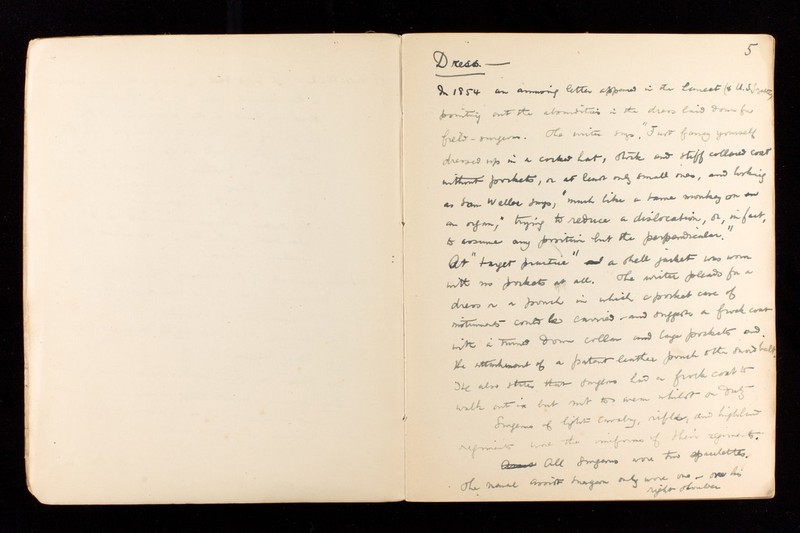 5
Dress. —
In 1854 an amusing letter appeared in the Lancet (& U.S.
pointing out the absurdities in the dress laid down for
field-surgeons. The writer says, "Just fancy yourself
dressed up in a cocked hat, stock and stiff collared coat
without pockets, or at least only small ones, and looking
as Sam Weller says, "much like a tame monkey on
an organ," trying to reduce a dislocation, or, in fact,
to assume any position but the perpendicular."
At "target practice" a shell jacket was worn
with no pockets at all. The writer pleads for a
dress or a pouch in which a pocket case of
instruments could be carried and suggests a frock coat
with a turned down collar and large pockets and
the attachment of a patent leather pouch to the sword belt.
He also states that surgeons had a frock coat to
walk out in but not to wear whilst on duty
Surgeons of light cavalry, rifle, and highland
regiments wore the uniforms of their regiments.
All surgeons wore two epaulettes.
The naval assist surgeon only wore one – on his
right shoulder